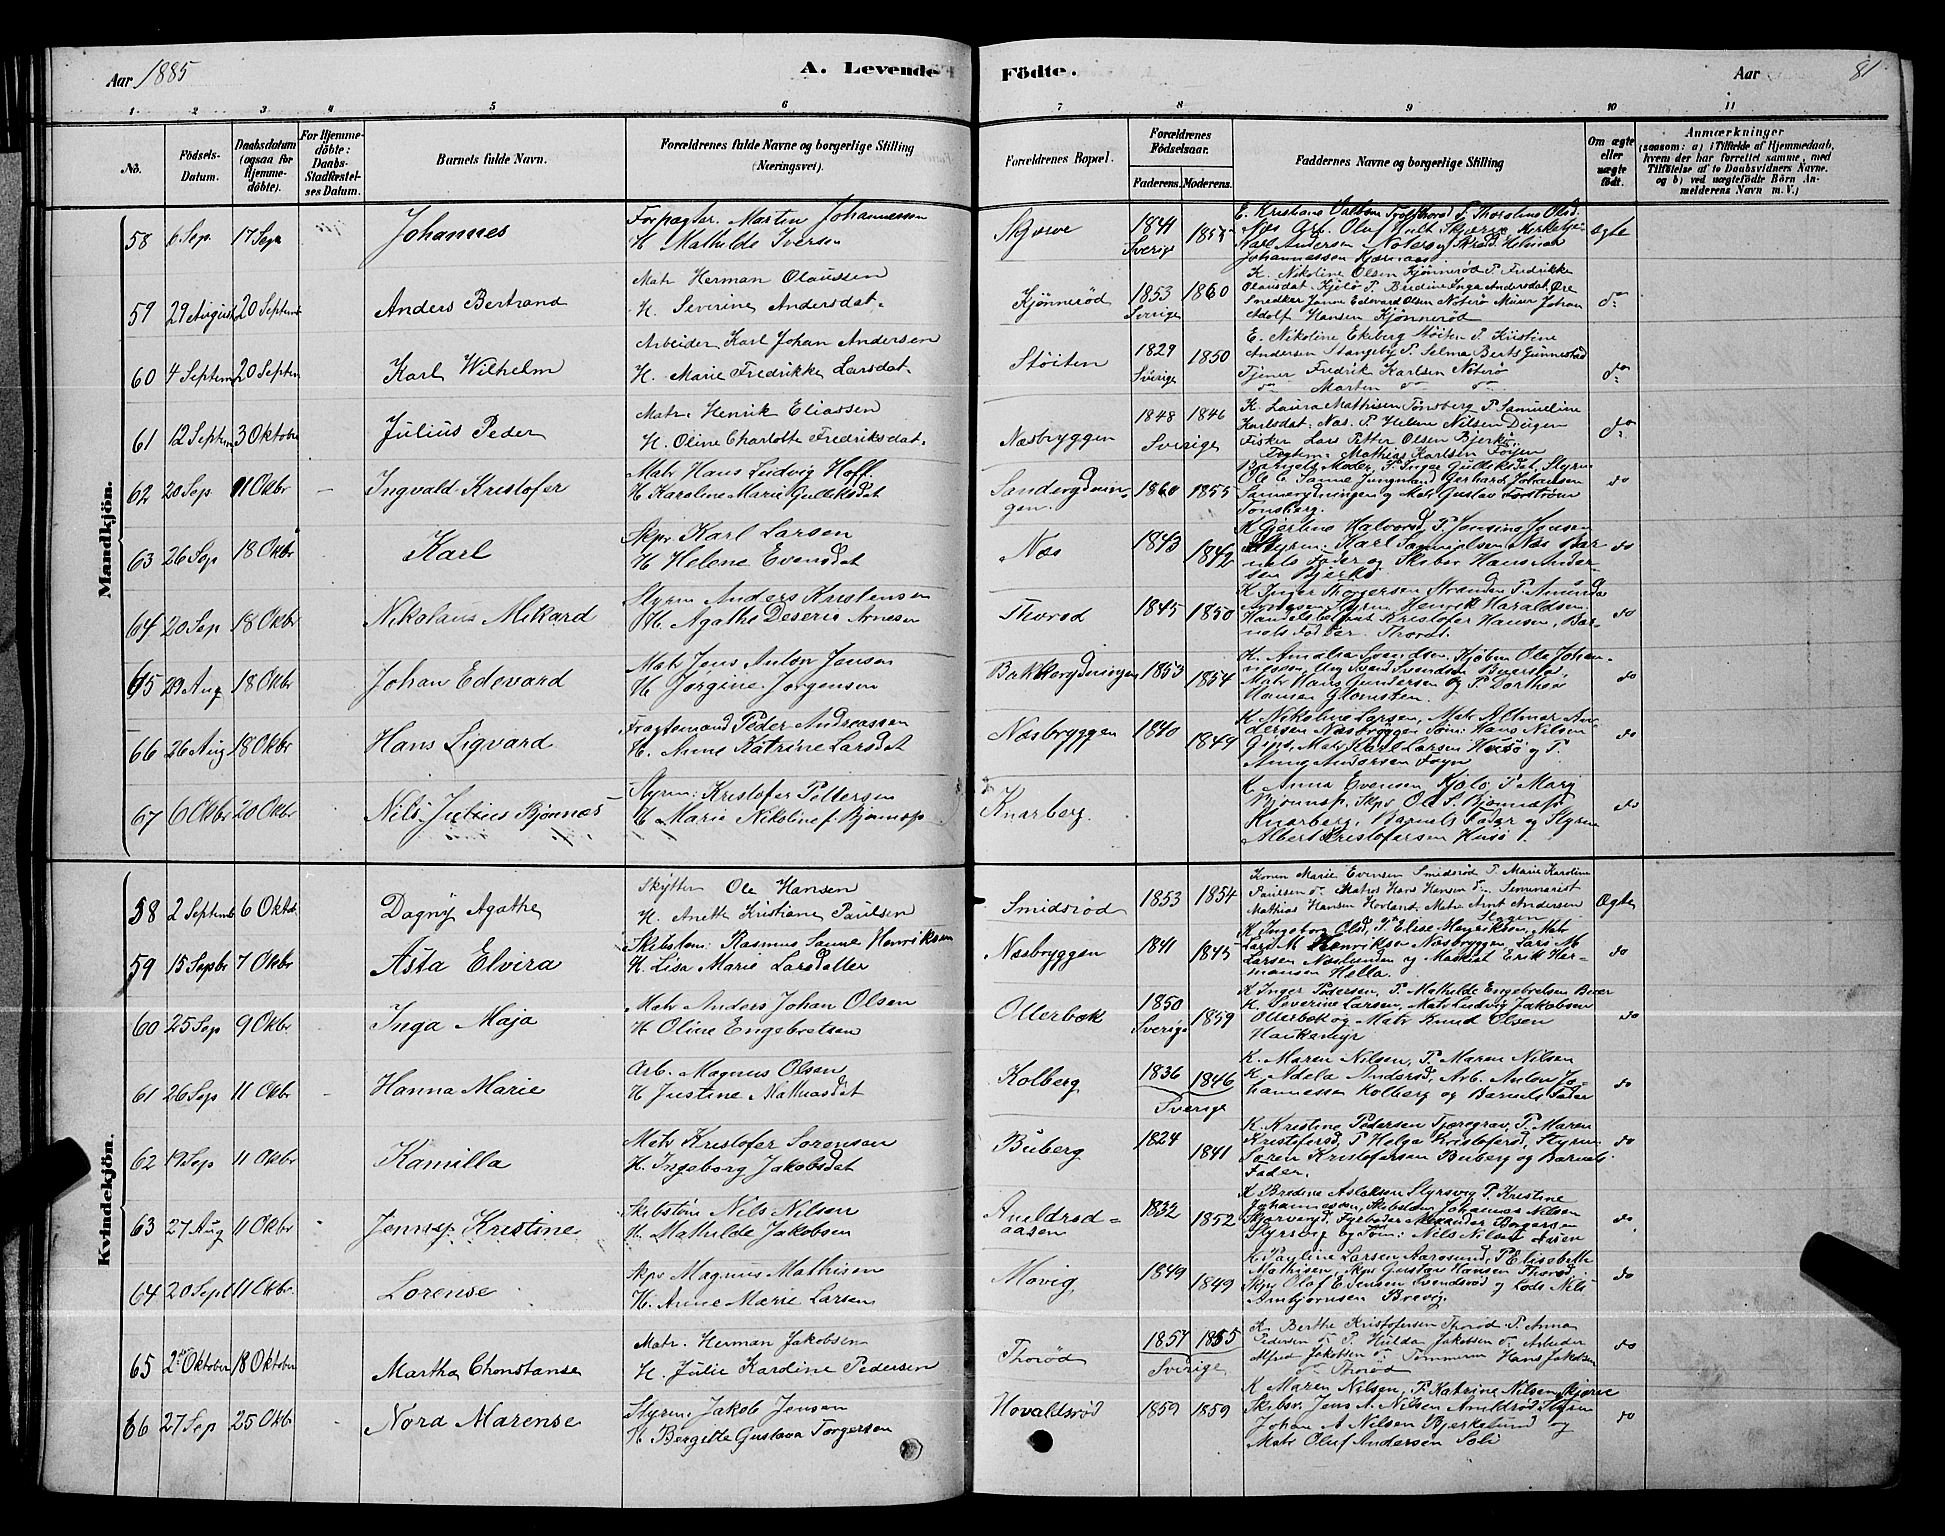 Aar 1885
A. Levende
Födte.
Aar
81
1. 2 3 4 5 6 7 8 9 10 11
No.
Födsels-Datum.
Daabsdatum (ogsaa for Hjemme-döbte).
For Hjemme-döbte: Daabs-Stadfæstel-ses Datum.
Barnets fulde Navn.
Forældrenes fulde Navne og borgerlige Stilling (Næringsvei).
Forældrenes Bopæl.
Forældrenes Födselsaar.
Faderens. Moderens.
Faddernes Navne og borgerlige Stilling
Om ægte eller uægte födt.
Anmærkninger
(saasom: a) i Tilfælde af Hjemmedaab,
hvem der har forrettet samme, med
Tilföielse af to Daabsvidners Navne.
og b) ved uægtefödte Börn An-
melderens Navn m. V.)
Mandkjön.
58 6 Sep. 17 Sep. Johannes
Forpagter. Martin Johannessen
H. Mathilde Iversen
Skjerve 1844 Sverige 1855
Johannessen
Ægte
59 29 August 20 Septemb Anders Bertrand
Matr. Herman Olaussen
H. Severine Andersdat.
Kjönneröd 1853 Sverige 1860
K. Nikoline Olsen Kjönneröd P. Fredrikke
Olausdat. Kjölö P. Bredine Inga Andersdat. Öre
Snedker Janne Edevard Olsen Nöterö Murer Johan
Adolf Hansen Kjönneröd
do
60 4 Septem 20 Septem Karl Wilhelm
Arbeider Karl Johan Andersen
H. Marie Fredrikke Larsdat.
Stöiten 1829 Sverige 1850
E. Nikoline Ekeberg Stöiten P. Kristine
Andersen Stangeby P. Selma Berts Gunnestad
Tjener Fredrik Karlsen Nöterö
do Marten do do
do
61 12 Septem 3 Oktober Julius Peder
Matr. Henrik Eliassen
H. Oline Charlotte Fredriksdat.
Næsbryggen 1848 1846 Sverige
K. Laura Mathisen Tönsberg P. Samueline
Karlsdat. Næs. P. Helene Nilsen Dugen
Fisker Lars Petter Olsen Bjerkö.
Mathias Karlsen Föyen
do
62 20 Sep. 11 Okbr — Ingvald Kristofer
Matr Hans Ludvig Hoff
H Karoline Marie Gulleksdat
Sanderydnin-
gen. 1860 1855
Barnets Moder, P. Inger Gulleksdat, Styrm
Ole C. Sanne Jungmand Gerhard Johansen
Sannerydningen og Matr Gustav Forström
Tönsberg.
do
63 26 Sep 18 Okbr Karl
Skpr Karl Larsen
H Helene Evensdat
Næs 1843 1842
K Gjertine Halvorsd P. Jensine Jensen
Styrm. Karl Samuelsen Næs Bar-
nets Fader og Skibsr Hans Ander-
sen Bjerkö
do
64 20 Sep 18 Okbr Nikolaus Mikard
Styrm Anders Kristensen
H. Agathe Deserie Arnesen
Thorod 1845 1850
K Inger Torgersen Stranden P. Amunda
Styrm Henrik Haraldsen,
Handelsbetjent Kristofer Hansen, Bar-
nets Fader. Thorod.
do
65 29 Aug 18 Okbr Johan Edevard
Matr Jens Anton Jensen
H. Jörgine Jörgensen
Bakkerydningen 1853 1854
K. Amalia Svendsen, Kjöbm Ole Johan-
nessen, Ung Svend Svendsen
Matr Hans Gundersen og P. Dorthea
Hansen Glomsten
do
66 26 Aug 18 Okbr Hans Sigvard
Fragtemand Peder Andreassen
H. Anne Katrine Larsdat
Næsbryggen 1840 1849
K Nikoline Larsen, Matr Altmar An-
dersen Næsbryggen Töm: Hans Nilsen
Gipö, Matr Karl Larsen Husö og P.
Anna Andersen Föyn
do
67 6 Okbr 20 Okbr Nils Julius Björnæs
Styrm: Kristofer Pettersen
H Marie Nikoline f. Björnæs
Knarberg.
K Anna Evensen Kjölö, P Mary
Björnæs, Skpr Ole S. Björnæs
Knarberg, Barnets Fader og Styrm
Albert Kristofersen Husö
do
Kvindekjön.
58 2 Septemb 6 Oktob Dagny Agathe
Skytter Ole Hansen
H. Anette Kristiane Paulsen
Smidsröd 1853 1854
Konen Marie Evensen Smidsröd P. Marie Karoline
Paulsen do Matros Hans Hansen do Seminarist
Mathias Hansen Hovland. Matr Arnt Andersen
Slagen
Ægte
59 15 Sepbr 7 Okbr Asta Elvira
Skibstöm: Rasmus Sanne Henriksen
H. Lisa Marie Larsdatter
Næsbryggen 1841 1845
K Ingeborg Olsd, P. Elise Henriksen, Matr
Lars M Henriksen Næsbryggen, Lars M.
Larsen Næslunden og Maskist Erik Her-
mansen Hella.
do
60 25 Sep 9 Okbr Inga Maja
Matr Anders Johan Olsen
H Oline Engebretsen
Ollerbæk 1850 Sverige 1859
K Inger Pedersen, P. Mathilde Engebretsen Buer
K. Severine Larsen, Matr Ludvig Jakobsen
Ollerbæk og Matr Knud Olsen
Haukemyr
do
61 26 Sep 11 Okbr — Hanna Marie
Arb. Magnus Olsen
H Justine Mathiasdat
Kolberg 1836 1846 Sverige
K. Maren Nilsen, P. Maren Nilsen
K Adela Andsröd, Arb. Anton Jo-
hannessen Kolberg og Barnets Fader
do
62 19 Sep 11 Okbr Kamilla
Matr Kristofer Sörensen
H. Ingeborg Jakobsdat
Buberg 1824 1841
K. Kristine Pedersen Tjæregrav, P. Maren
Kristofersd, P Helga Kristofersd, Styrm
Sören Kristofersen Buberg og Barnets
Fader.
do
63 27 Aug 11 Okbr Jenny Kristine
Skibstöm Nils Nilsen
H. Mathilde Jakobsen
Aneldröd-
aasen 1832 1852
K Bredine Aslaksen Styrsvig P. Kristine
Johannessen, Skibstöm Johannes Nilsen
Skjærvard, Fyrböder Alexander Borgersen
Styrsvig og Töm: Nils Nilsen Aasen
do
64 20 Sept 11 Okbr. Lorense
Skpr Magnus Mathisen
H. Anne Marie Larsen
Movig 1849 1849
K Pauline Larsen Aarosund, P Elisabeth
Mathisen, Skpr Gustav Hansen Thoröd
Skpr Olaf E. Jensen Svendsröd og Lods Nils
Ambjörnsen Brevig.
do
65 2 Oktober 18 Oktober Martha Chonstanse
Matr. Herman Jakobsen
H. Julie Kardine Pedersen
Thoröd 1857 1855 Sverige
K. Berthe Kristofersen Thoröd P. Anna
Pedersen do P. Hulda Jakobsen do Arbeider
Alfred Jakobsen do Tömmerm Hans Jakobsen
do Thoröd
do
66 27 Sep 25 Okb. Nora Marense
Styrm: Jakob Jensen
H Bergitte Gustava Torgersen
Hovaldsröd 1859 1859
K Maren Nilsen, P. Katrine Nilsen Skjerve
Skibsr. Jens A. Nilsen Aneldröd, Styrm
Johan A Nilsen Bjerkelund og
Matr Oluf Andersen Solv
do